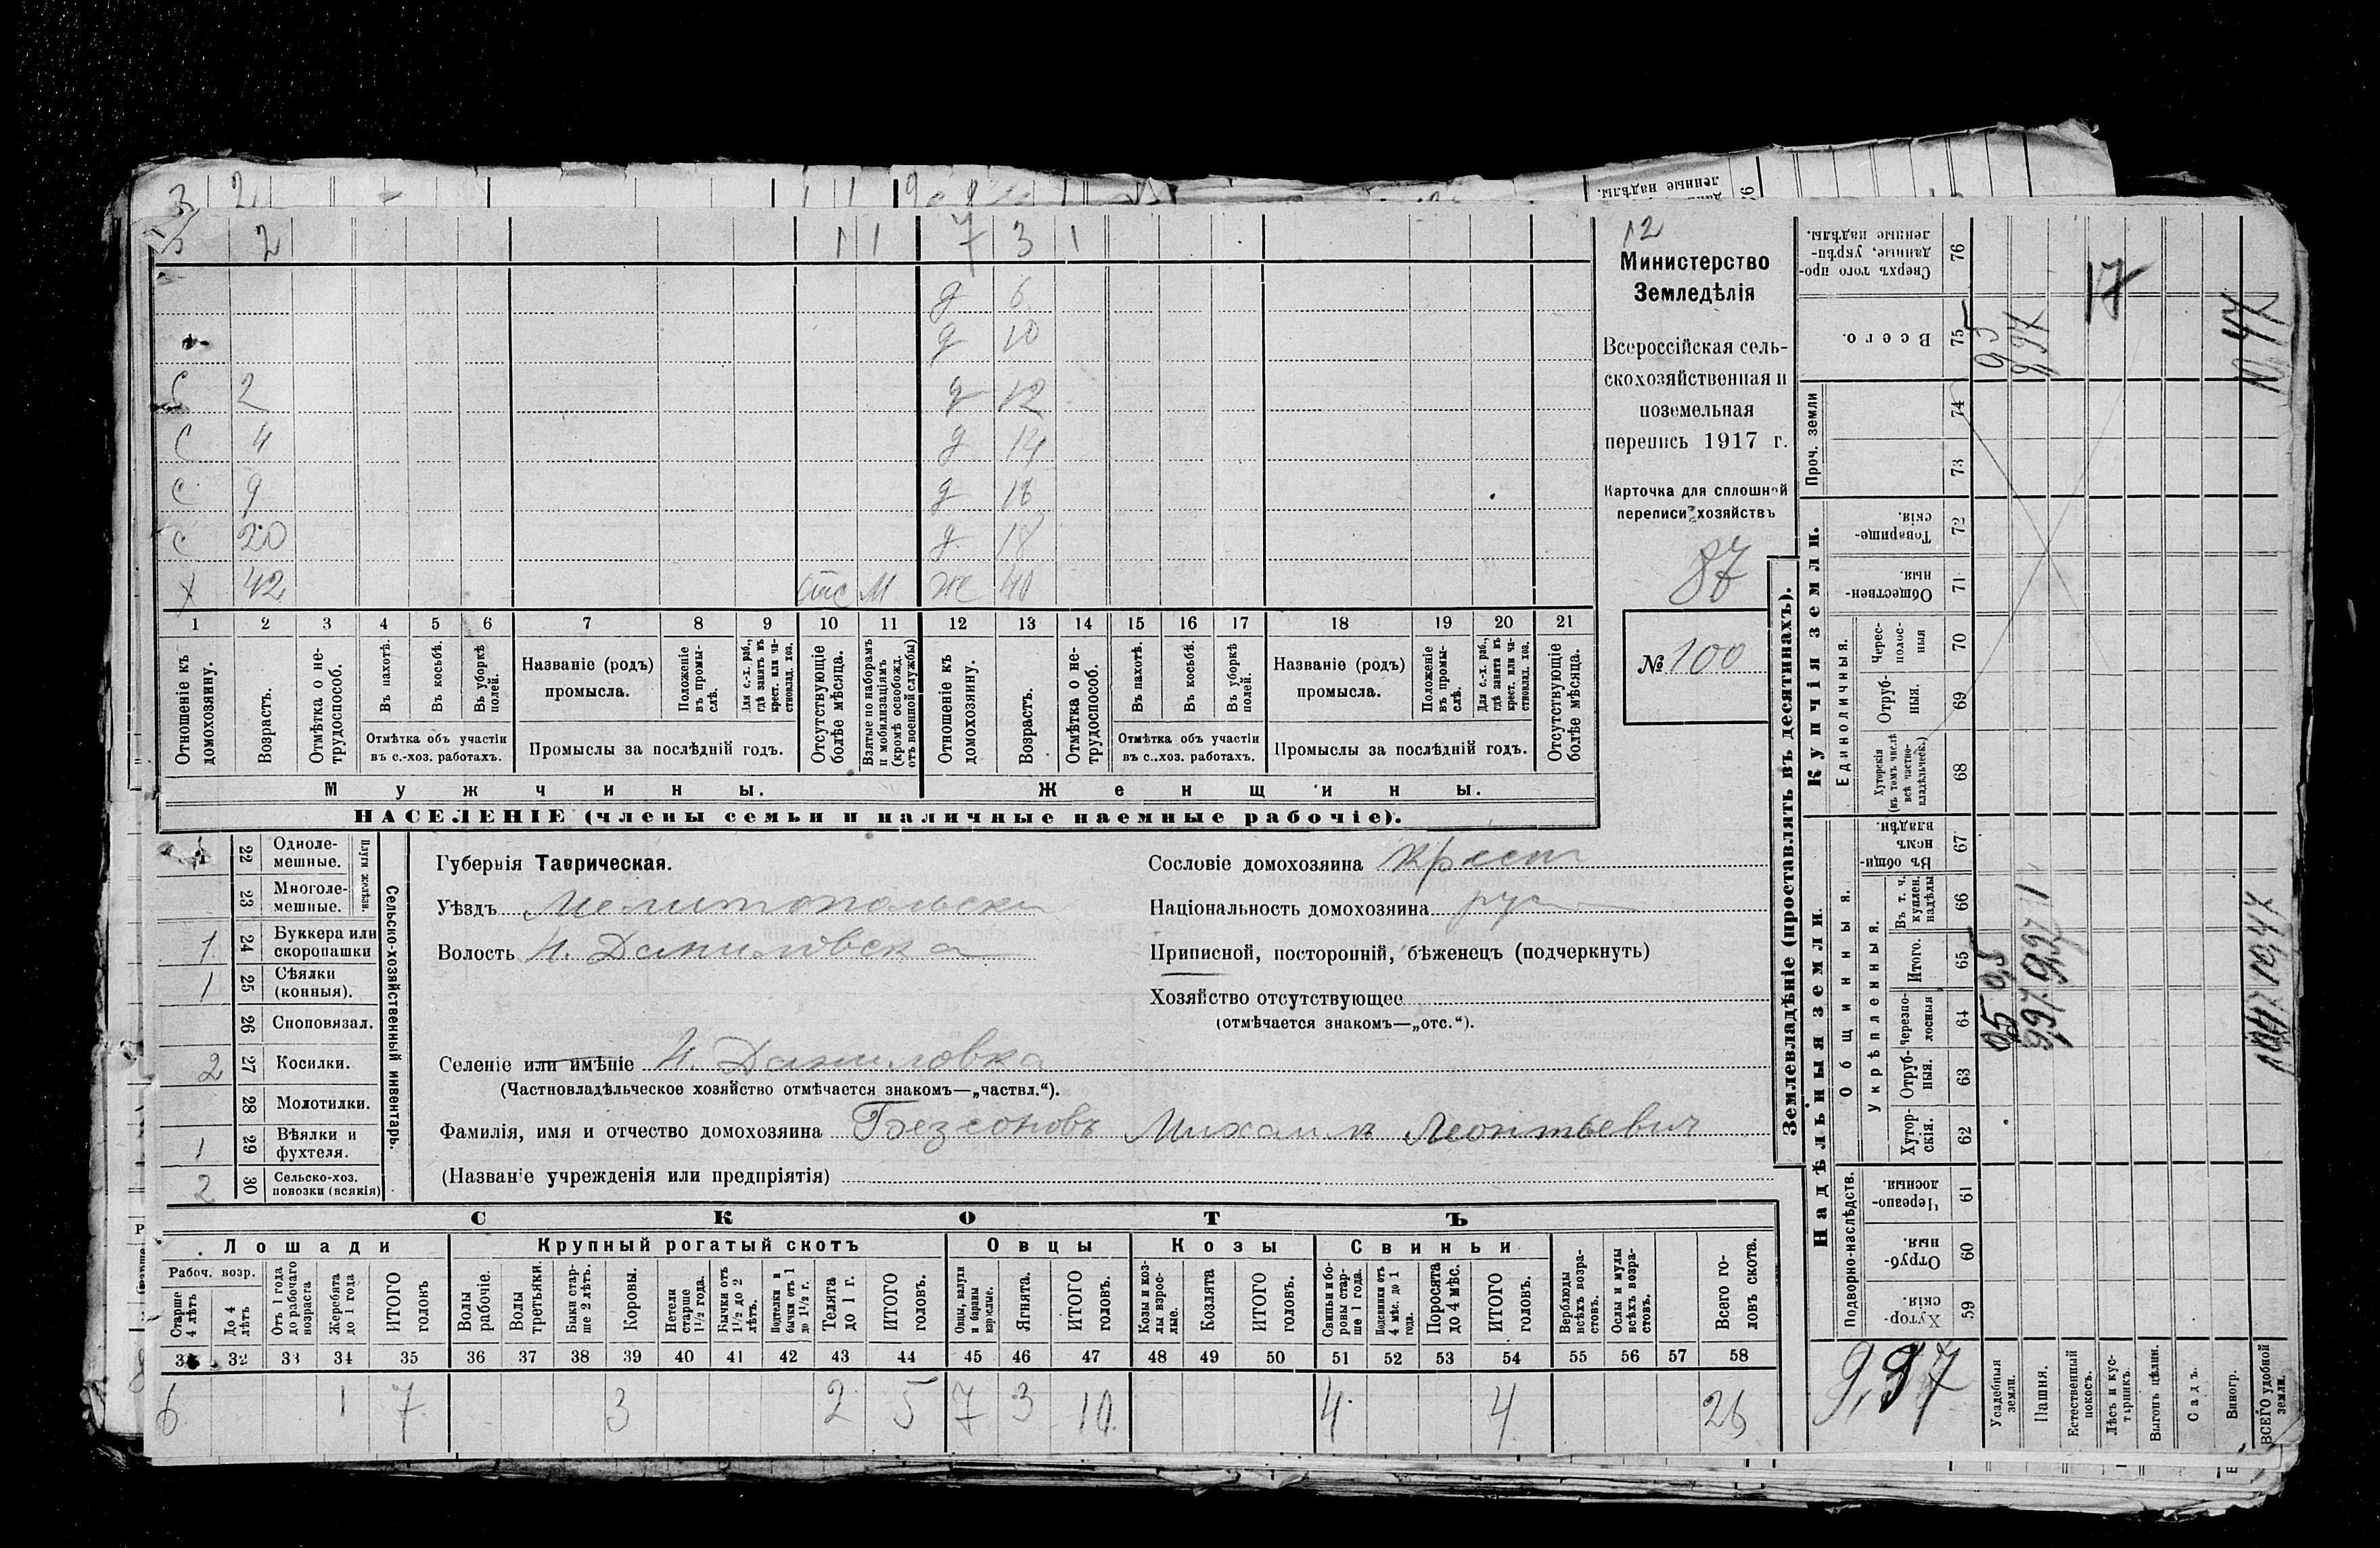 3 2
5 2 1 1 7 3 1
д 6
д 10
С 2 д 12
С 4 д 14
С 9 д 16
С 20 д 18
Х 42 отс М Ж 40
1 2 3 4 5 6 7 8 9 10 11 12 13 14 15 16 17 18 19 20 21
Отношеніе къ домохозяину.
Возрастъ.
Отмѣтка о не-трудоспособ.
Въ пахотѣ.
Въ косьбѣ.
Въ уборкѣ полей.
Отмѣтка объ участіи въ с.-хоз. работахъ.
Названіе (родъ) промысла.
Положеніе въ промы-слѣ.
Для с.-х. раб., гдѣ занятъ въ крест. или ча-стновлад. хоз.
Промыслы за послѣдній годъ.
Отсутствующіе болѣе мѣсяца.
Взятые по наборамъ и мобилизаціямъ (кромѣ освобожд. отъ военной службы)
Отношеніе къ домохозяину.
Возрастъ.
Отмѣтка о не-трудоспособ.
Въ пахотѣ.
Въ косьбѣ.
Въ уборкѣ полей.
Отмѣтка объ участіи въ с..хоз. работахъ.
Названіе (родъ) промысла.
Положеніе въ промы-слѣ.
Для с.-х. раб., гдѣ занята въ крест. или ча-стновлад. хоз.
Промыслы за послѣдній годъ.
Отсутствующіе болѣе мѣсяца.
Мужчины. Женщины.
НАСЕЛЕНІЕ (члены семьи и наличные наемные рабочіе).
12
Министерство
Земледѣлія
Всероссійская сель-
скохозяйственная и
поземельная
перепись 1917 г.
Карточка для сплошной
переписи хозяйствъ
87
№ 100
22 Одноле-мешные.
23 Многоле-мешные.
Плуги желѣзн.
1 24 Буккера или скоропашки
1 25 Сѣялки (конныя).
26 Сноповязал.
2 27 Косилки.
28 Молотилки.
1 29 Вѣялки и фухтеля.
2 30 Сельско-хоз. повозки (всякія)
Сельско-хозяйственный инвентарь.
Губернія Таврическая.
Уѣздъ Мелитопольски
Волость Н. Даниловска
Сословіе домохозяина Крест
Національность домохозяина рус
Приписной, посторонній, бѣженецъ (подчеркнуть)
Хозяйство отсутствующее
(отмѣчается знакомъ—„отс.“).
Селеніе или имѣніе Н. Даниловка
(Частновладѣльческое хозяйство отмѣчается знакомъ—„частвл.“).
Фамилія, имя и отчество домохозяина Безсоновъ Михаилъ Леонтьевич
(Названіе учрежденія или предпріятія)
СКОТЪ
Лошади Крупный рогатый скотъ Овцы Козы Свиньи
Рабоч. возр.
Старше 4 лѣтъ
До 4 лѣтъ
Отъ 1 года до рабочаго возраста
Жеребята до 1 года
ИТОГО головъ
Волы рабочіе.
Волы третьяки.
Быки стар-ше 2 лѣтъ.
Коровы.
Нетели старше 1½ года.
Бычки отъ 1½ до 2 лѣтъ.
Подтелки и бычки отъ 1 до 1½ г.
Телята до 1 г.
ИТОГО головъ.
Овцы, валухи и бараны взрослые.
Ягнята.
ИТОГО головъ.
Козы и коз-лы взрос-лые.
Козлята
ИТОГО головъ.
Свиньи и бо-ровы стар-ше 1 года.
Подсвинки отъ 4 мѣс. до 1 года.
Поросята до 4 мѣс.
ИТОГО головъ.
Верблюды всѣхъ возра-стовъ.
Ослы и мулы всѣхъ возра-стовъ.
Всего го-ловъ скота.
31 32 33 34 35 36 37 38 39 40 41 42 43 44 45 46 47 48 49 50 51 52 53 54 55 56 57 58
6 1 7 3 2 5 7 3 10 4 4 26
Землевладѣніе (проставлять въ десятинахъ).
Надѣльныя земли. Купчія земли. Проч. земли
Подворно-наслѣдств.
Общинныя.
Укрѣпленныя.
Единоличныя.
59 Хутор-скія.
60 Отруб-ныя.
61 Черезпо-лосныя
62 Хутор-скія.
63 Отруб-ныя.
64 Черезпо-лосныя
65 Итого.
66 Въ т. ч. куплен. надѣлы
67 Въ общи-нномъ владѣн.
68 Хуторскія (въ томъ числѣ всѣ частно-владѣльческ.)
69 Отруб-ныя.
70 Черес-полос-ныя
71 Обществен-ныя.
72 Товарище-скія.
73
74
75 Всего.
76 Сверхъ того про-данные, укрѣп-ленные надѣлы.
9,97
Усадебныя земли. 0,5 0,5
Пашня. 9,97 9,97
Естественный покосъ.
17
Лѣсъ и кус-тарникъ.
Выгонъ цѣлин.
Садъ.
Виногр.
ВСЕГО удобной земли. 10,47